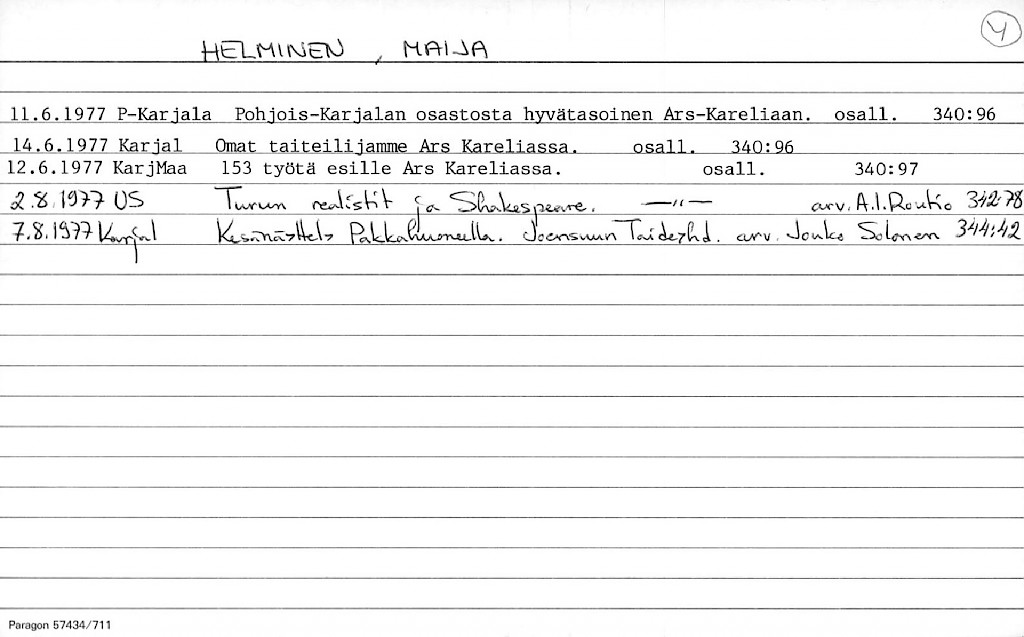 4
HELMINEN, MAIJA
11.6.1977 P-Karjala Pohjois-Karjalan osastosta hyvätasoinen Ars-Kareliaan. osall. 340:96
14.6.1977 Karjal Omat taiteilijamme Ars Kareliassa. osall. 340:96
12.6.1977 KarjMaa 153 työtä esille Ars Kareliassa. osall. 340:97
2.8.1977 US Turun realistit ja Shakespeare. —"— arv. A.I. Routio 342:78
7.8.1977 Karjal Kesänäyttely Pakkahuoneella. Joensuun Taideyhd. arv. Jouko Solonen 344:42
Paragon 57434/711